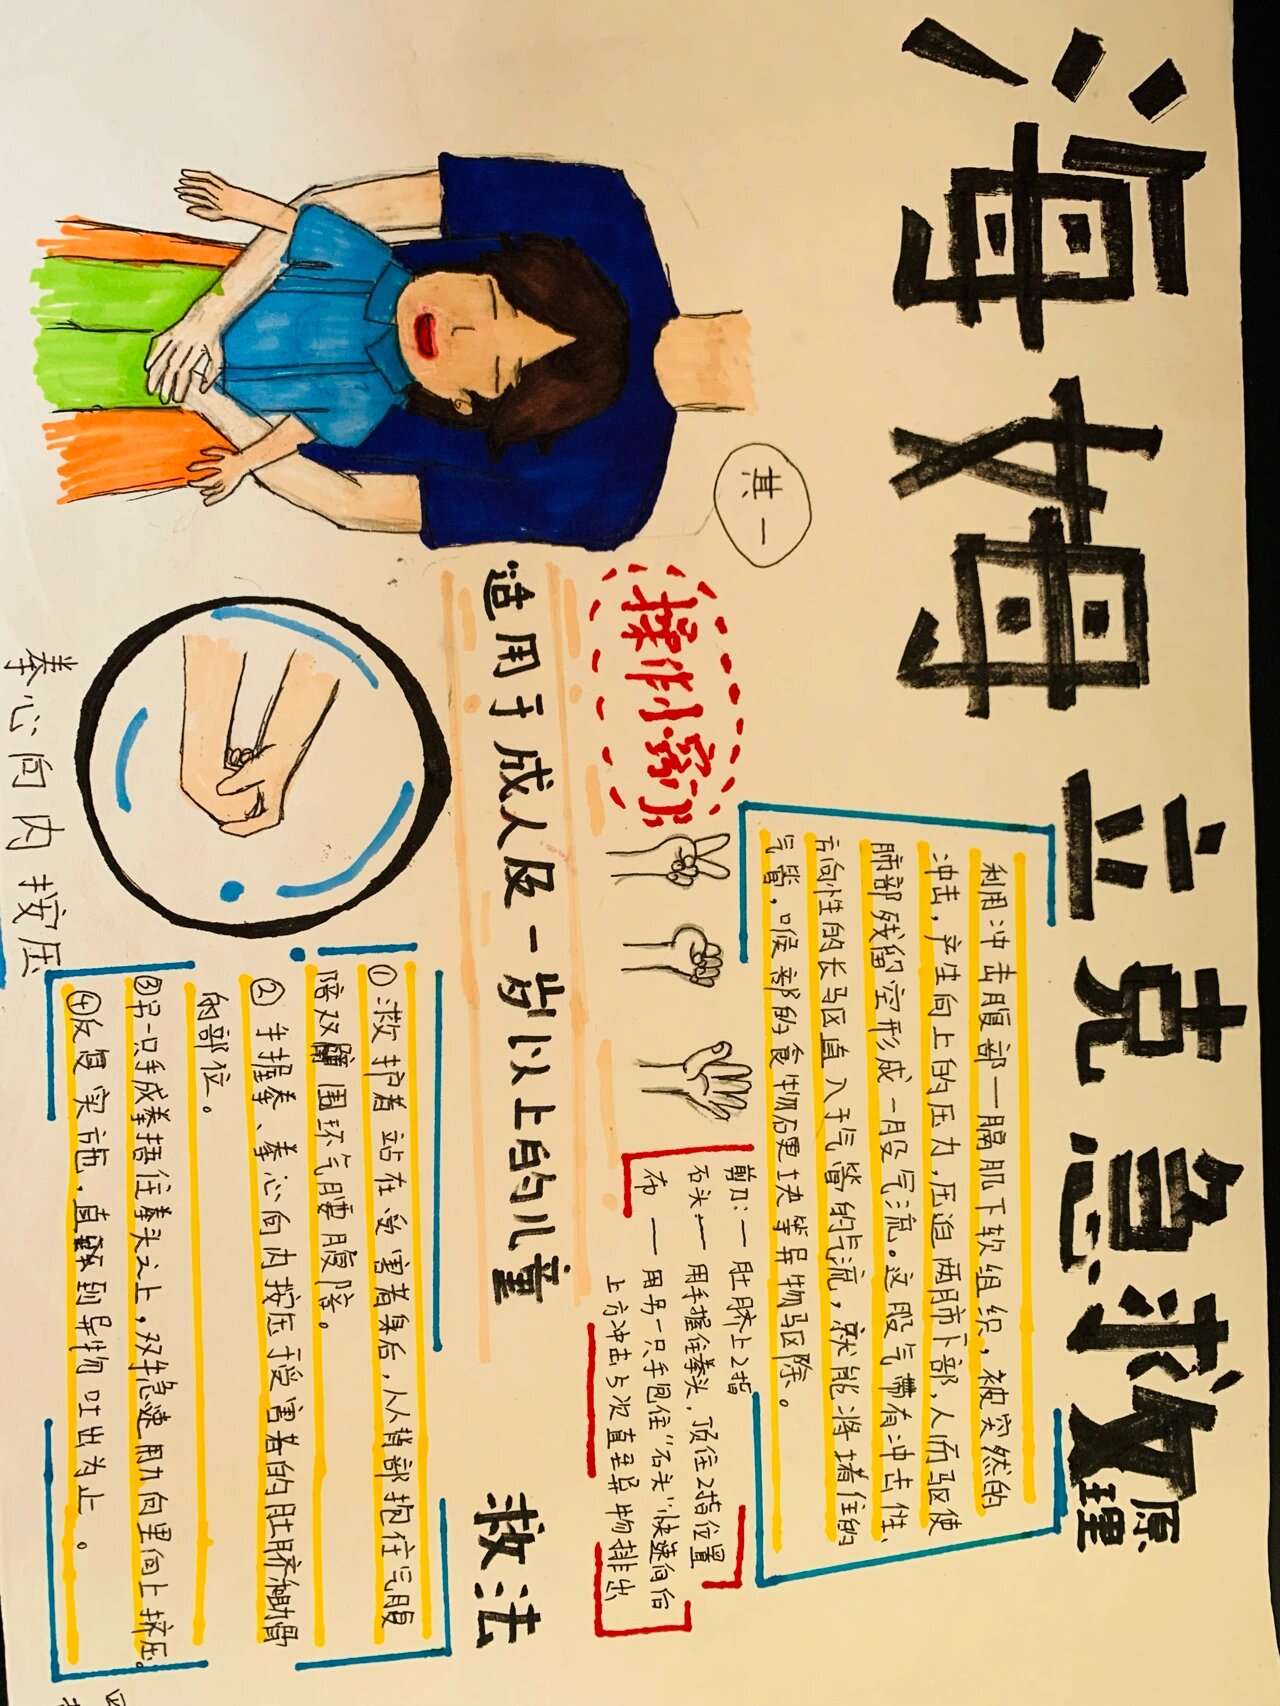 海姆立克急救
原理
利用冲击腹部—膈肌下软组织，被突然的
冲击，产生向上的压力，压迫两肺下部，人而驱使
肺部残留的空形成一股气流。这股气带有冲击性、
方向性的长驱直入于气管的气流，就能将堵住的
气管，喉部的食物硬块等异物驱除、
其一
操作小窍门
剪刀：— 肚脐上2指
石头：— 用手握住拳头，顶住2指位置
布 — 用另一只手包住“石头”快速向后
上方冲击5次直至异物排出
适用于成人及一岁以上的儿童
救法
①救护者站在受害者身后，从背部抱住气腹
陪双臂围环气腰腹陪。
② 手握拳、拳心向内按压于受害者的肚脐和肋骨
的部位。
③另一只手成拳捂住拳头之上，双手急速用力向里向上挤压。
④反复实施，直到异物吐出为止。
拳心向内按压